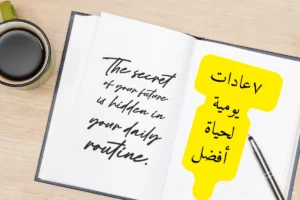 The secret
of your future
is hidden in
your daily
routine.
٧عادات
يومية
لحياة
أفضل